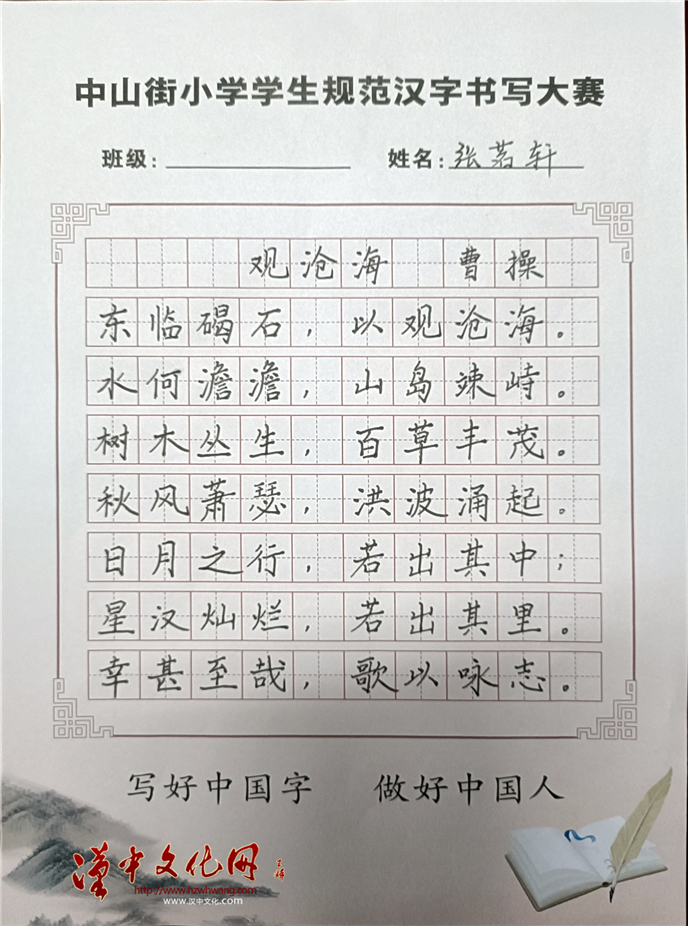 中山街小学学生规范汉字书写大赛
班级: 姓名: 张茗轩
观沧海 曹操
东临碣石，以观沧海。
水何澹澹，山岛竦峙。
树木丛生，百草丰茂。
秋风萧瑟，洪波涌起。
日月之行，若出其中；
星汉灿烂，若出其里。
幸甚至哉，歌以咏志。
写好中国字 做好中国人
漢中文化网
http://www.hzwhwang.com
www.汉中文化.com